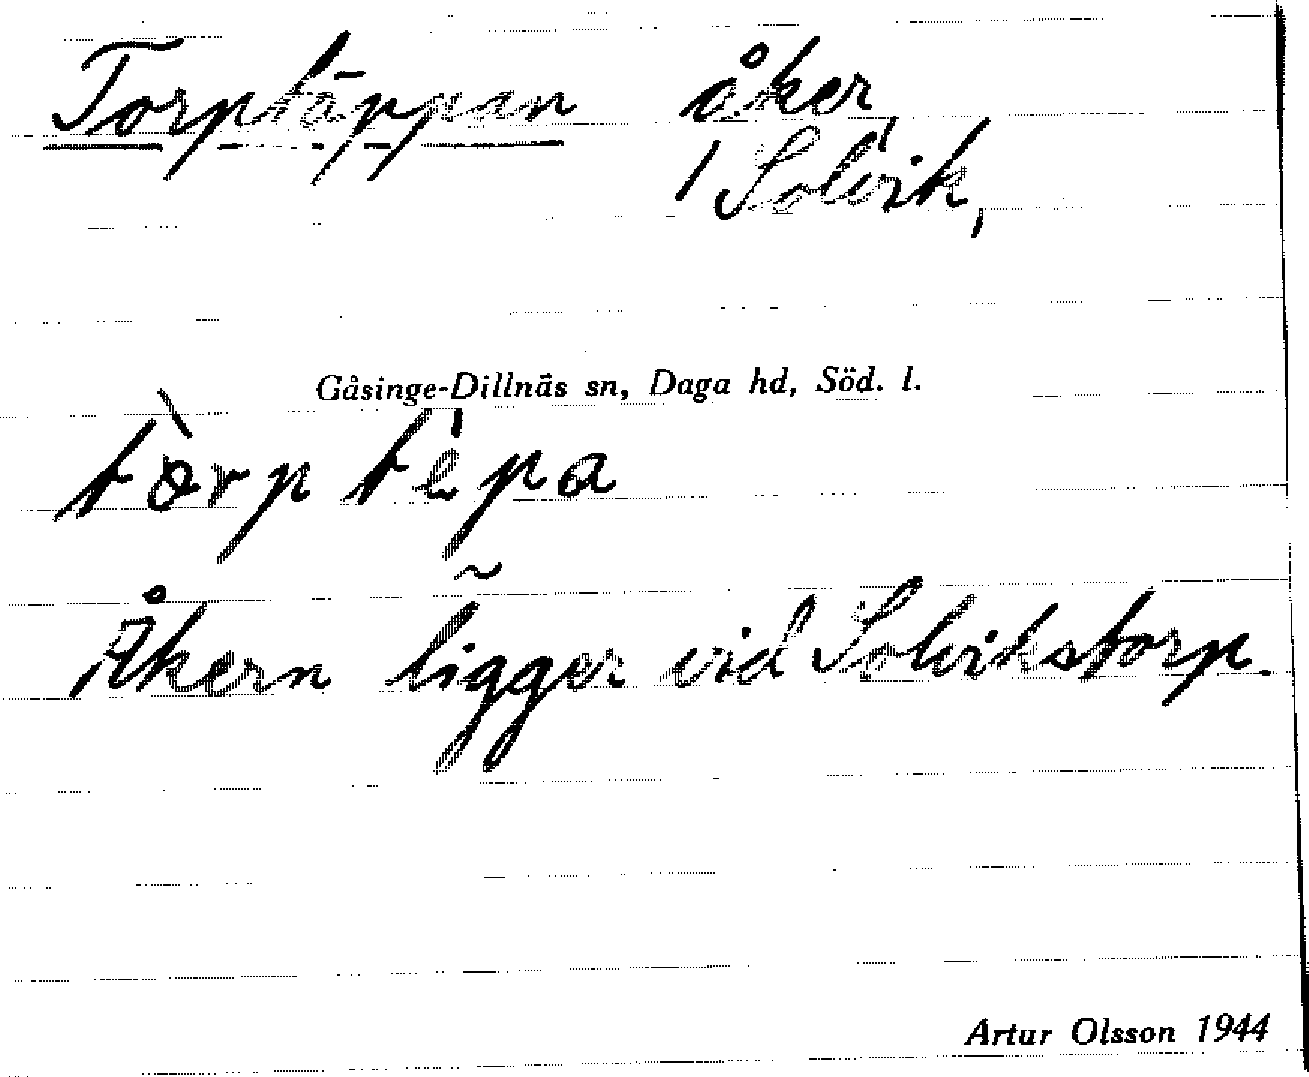 Torptäppan åker,
/ Solvik,
Gåsinge-Dillnäs sn, Daga hd, Söd. l.
tòrptépa
Åkern ligger vid Solvikstorp.
Artur Olsson 1944